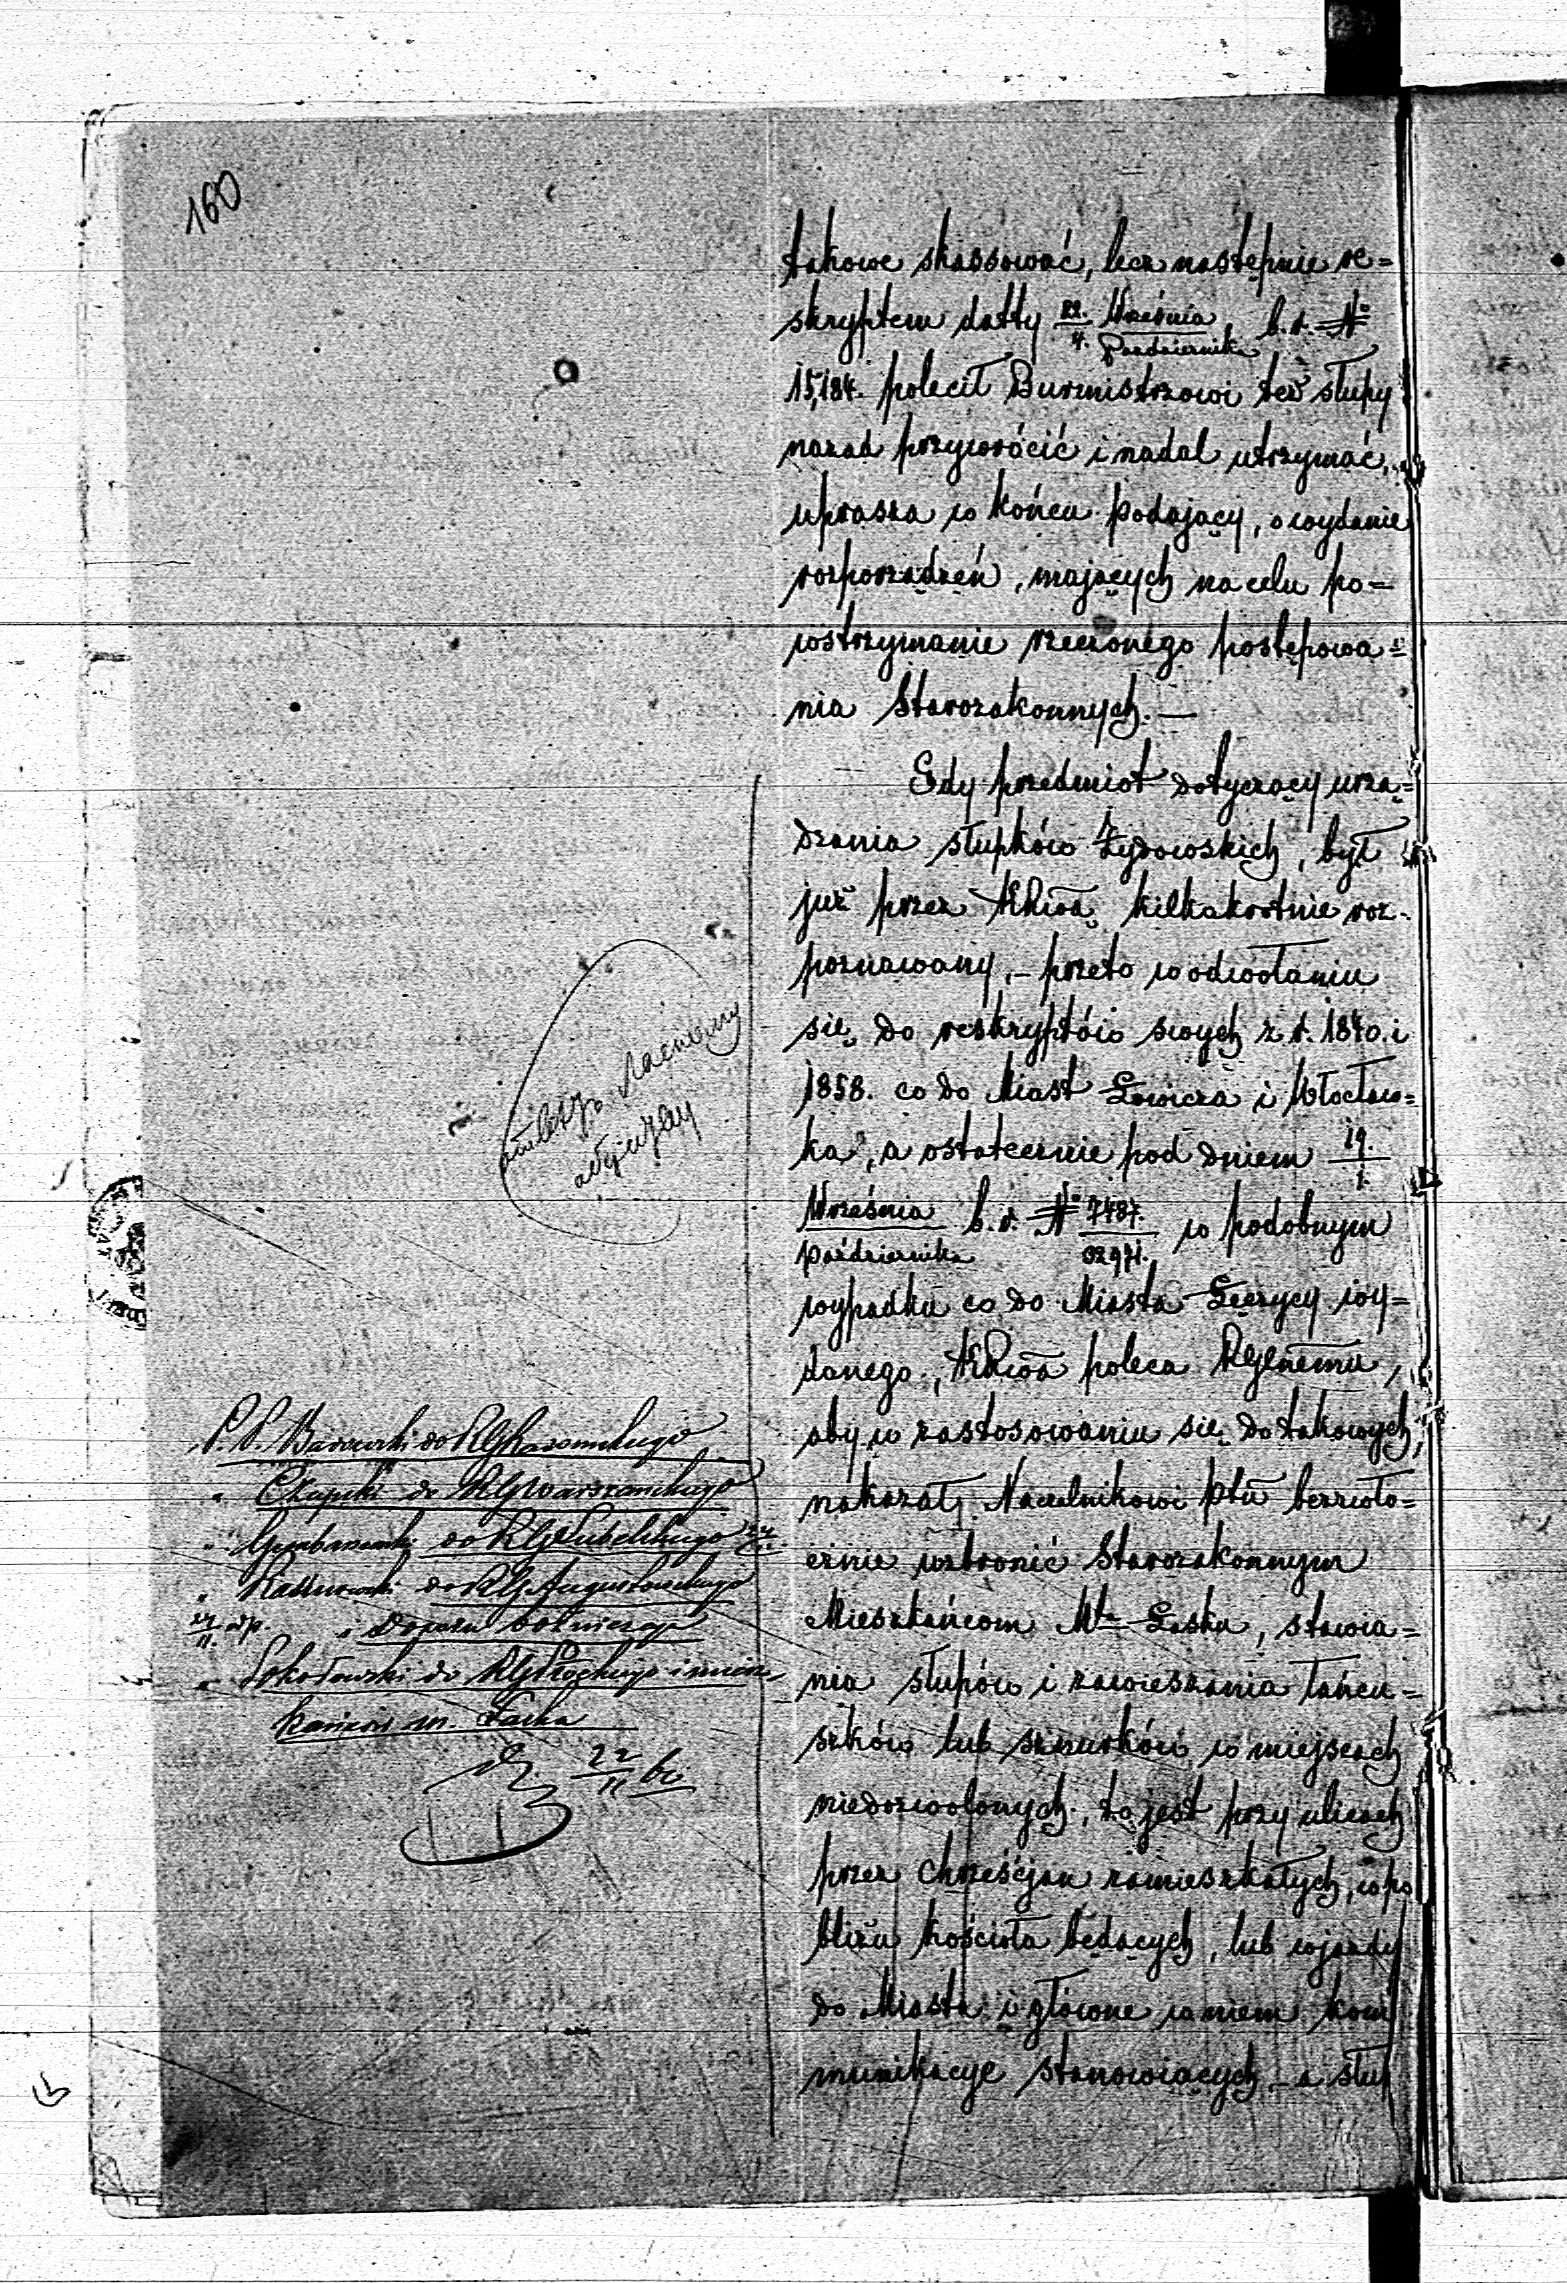 160
takowe skassować, lecz następnie re=
skryptem datty 22. Września / 4. Października b. r. №
15,184. polecił Burmistrzowi też słupy
nazad przywrócić i nadal utrzymać,
uprasza w końcu podający, o wydanie
rozporządzeń, mających na celu po=
wstrzymanie rzeczonego postępowa=
nia Starozakonnych. —
Gdy przedmiot dotyczący urzą=
dzania słupków Żydowskich, był
już przez KRzą kilkakrotnie roz-
poznawany, – przeto w odwołaniu
się do reskryptów swych z r. 1840. i
1858. co do Miast Łowicza i Włocław=
ka, a ostatecznie pod dniem 19. / 1.
Września / Października b. r. № 7487. / 32971. w podobnym
wypadku co do Miasta Łęczycy wy=
danego, poleca
aby w zastosowaniu się do takowych,
nakazał Naczelnikowi Ptu bezzwło=
cznie wzbronić Starozakonnym
Mieszkańcom Mta Łaska, stawia=
nia słupów i zawieszania łańcu=
szków lub sznurków w miejscach
niedozwolonych, to jest przy ulicach
przez chrześcjan zamieszkałych, w po
bliżu kościoła będących, lub wjazdy
do Miasta i główne w niem kom
munikacye stanowiących – a słup
do RG Radomskiego
do RG Warszawskiego
do RG Lubelskiego
do RG Augustowskiego
i Dozoru bożniczego
Sokołowski do RG Płockiego i miesz
kańców m. Łaska
22/11